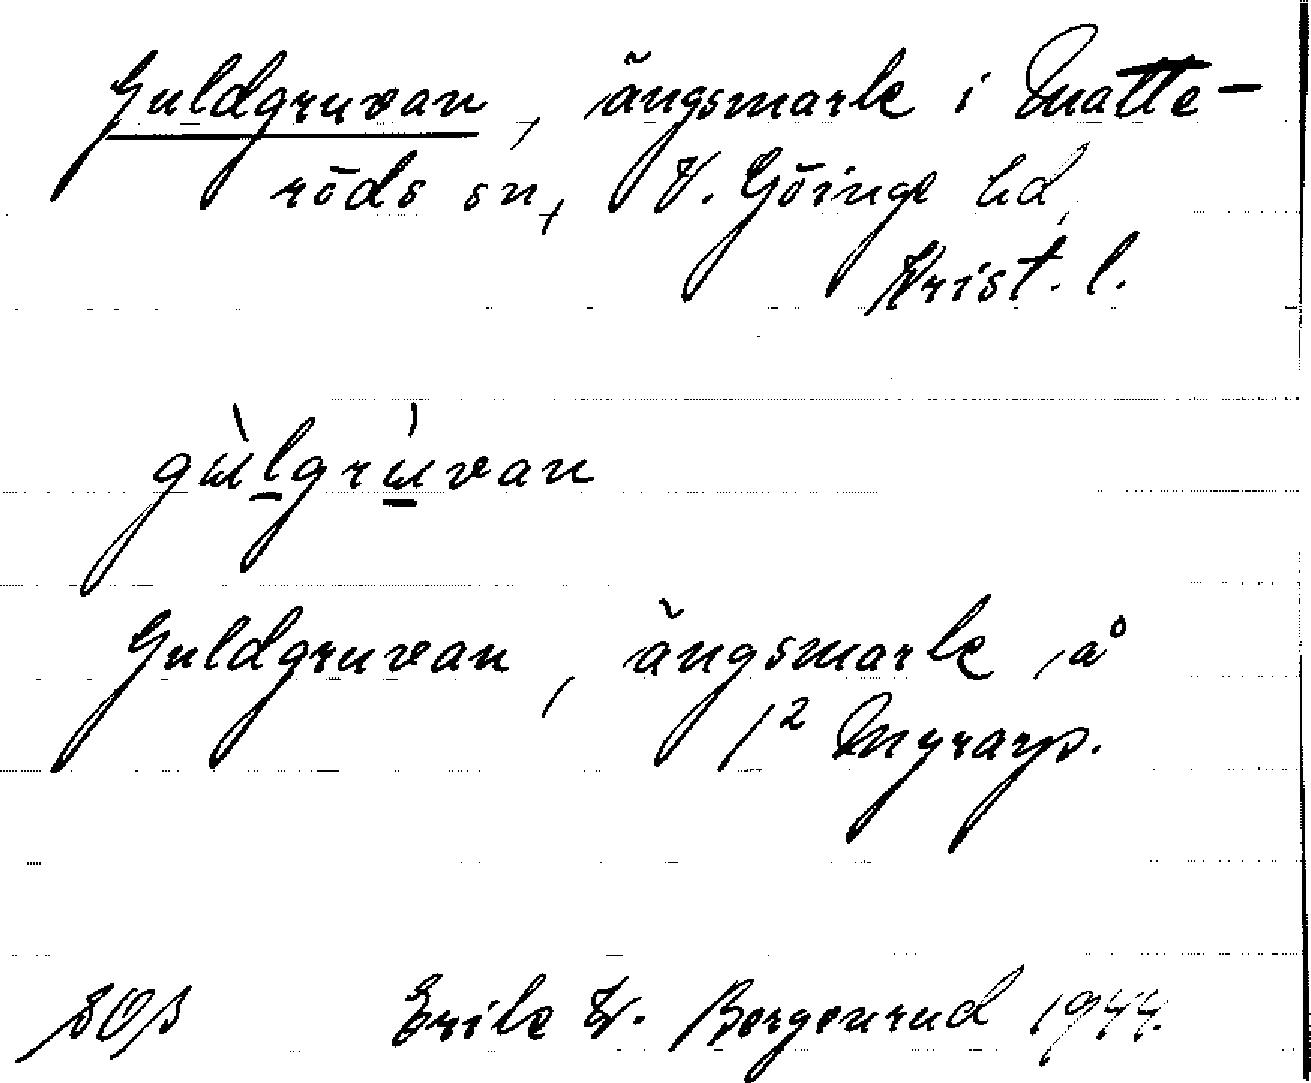 Guldgruvan, ängsmark i Matte-
röds sn, V. Göinge hd,
Krist. l.
gùlgrúvan
Guldgruvan, ängsmark, å
1² Myrarp.
Erik W. Bergenrud 1944.